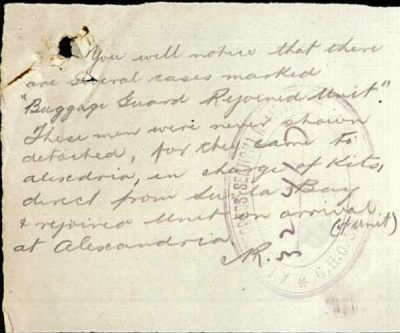 You will notice that there
are several cases marked
"Baggage Guard Rejoined Unit".
These men were never shown
detached, for they came to
alexdria, in charge of Kits,
direct from Suvla Bay
& rejoined Unit on arrival
(of unit)
at Alexandria.
G.H.Q.